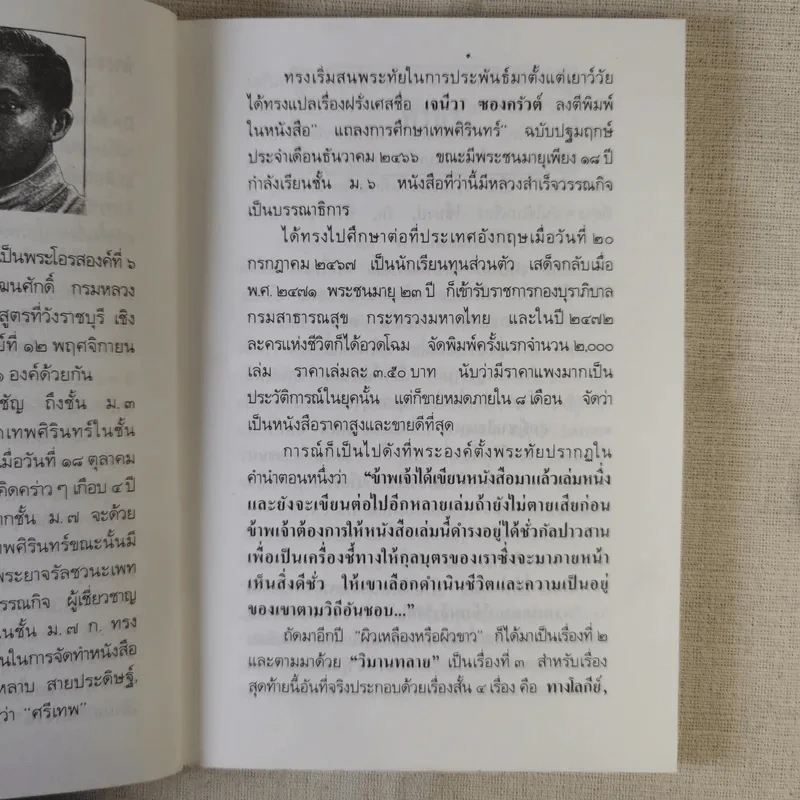 เป็นพระโอรสองค์ที่ ๖
ฒนศักดิ์ กรมหลวง
สูตรที่วังราชบุรี เชิง
ย์ที่ ๑๒ พฤศจิกายน
๑ องค์ด้วยกัน
ชัญ ถึงชั้น ม. ๓
เทพศิรินทร์ในชั้น
มื่อวันที่ ๑๘ ตุลาคม
คิดคร่าว ๆ เกือบ ๔ ปี
ากชั้น ม. ๗ จะด้วย
ทพศิรินทร์ขณะนั้นมี
พระยาจรัลชวนะเพท
รรณกิจ ผู้เชี่ยวชาญ
นชั้น ม. ๗ ก. ทรง
นในการจัดทำหนังสือ
หลาบ สายประดิษฐ์,
ว่า “ศรีเทพ”
ทรงเริ่มสนพระทัยในการประพันธ์มาตั้งแต่เยาว์วัย
ได้ทรงแปลเรื่องฝรั่งเศสชื่อ เจนีวา ซองครัวต์ ลงตีพิมพ์
ในหนังสือ” แถลงการศึกษาเทพศิรินทร์” ฉบับปฐมฤกษ์
ประจำเดือนธันวาคม ๒๔๖๖ ขณะมีพระชนมายุเพียง ๑๘ ปี
กำลังเรียนชั้น ม. ๖ หนังสือที่ว่านี้มีหลวงสำเร็จวรรณกิจ
เป็นบรรณาธิการ
ได้ทรงไปศึกษาต่อที่ประเทศอังกฤษเมื่อวันที่ ๒๐
กรกฎาคม ๒๔๖๗ เป็นนักเรียนทุนส่วนตัว เสด็จกลับเมื่อ
พ.ศ. ๒๔๗๑ พระชนมายุ ๒๓ ปี ก็เข้ารับราชการกองบุราภิบาล
กรมสาธารณสุข กระทรวงมหาดไทย และในปี ๒๔๗๒
ละครแห่งชีวิตก็ได้อวดโฉม จัดพิมพ์ครั้งแรกจำนวน ๒,๐๐๐
เล่ม ราคาเล่มละ ๓.๕๐ บาท นับว่ามีราคาแพงมากเป็น
ประวัติการณ์ในยุคนั้น แต่ก็ขายหมดภายใน ๘ เดือน จัดว่า
เป็นหนังสือราคาสูงและขายดีที่สุด
การณ์ก็เป็นไปดังที่พระองค์ตั้งพระทัยปรากฏใน
คำนำตอนหนึ่งว่า “ข้าพเจ้าได้เขียนหนังสือมาแล้วเล่มหนึ่ง
และยังจะเขียนต่อไปอีกหลายเล่มถ้ายังไม่ตายเสียก่อน
ข้าพเจ้าต้องการให้หนังสือเล่มนี้ดำรงอยู่ได้ชั่วกัลปาวสาน
เพื่อเป็นเครื่องชี้ทางให้กุลบุตรของเราซึ่งจะมาภายหน้า
เห็นสิ่งดีชั่ว ให้เขาเลือกดำเนินชีวิตและความเป็นอยู่
ของเขาตามวิถีอันชอบ...”
ถัดมาอีกปี “ผิวเหลืองหรือผิวขาว” ก็ได้มาเป็นเรื่องที่ ๒
และตามมาด้วย “วิมานทลาย” เป็นเรื่องที่ ๓ สำหรับเรื่อง
สุดท้ายนี้อันที่จริงประกอบด้วยเรื่องสั้น ๔ เรื่อง คือ ทางโลกีย์,